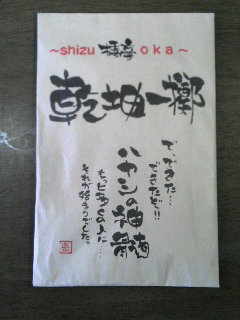 ~shizu 亭 oka~
乾坤一擲
で、できた…
できたぞ!!
ハヤシの神髄
もっと多くの人に…
それが始まりでした。